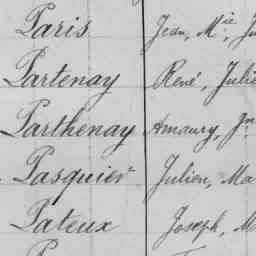 Paris Jean, M.ie, Ju
Partenay René, Julie
Parthenay Amaury, J.m
Pasquier Julien, Ma
Pateux Joseph, M